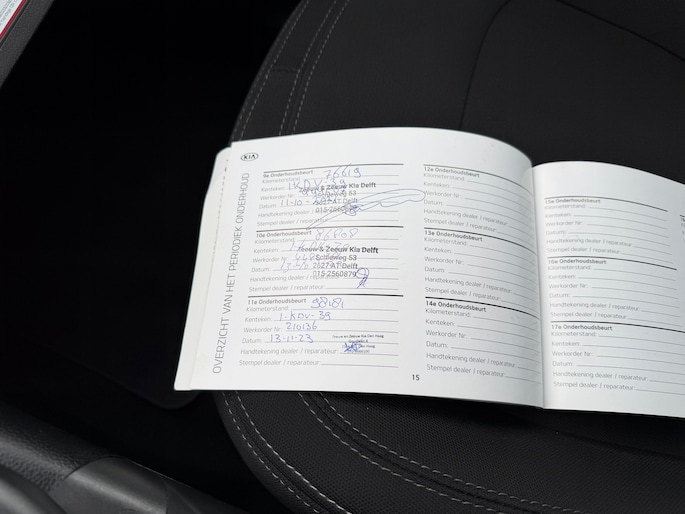 KIA
OVERZICHT VAN HET PERIODIEK ONDERHOUD
9e Onderhoudsbeurt
Kilometerstand: 76619
Kenteken: 1-KDV-39
Werkorder Nr:
Datum: 11-10-
Handtekening dealer / reparateur:
Stempel dealer / reparateur:
Zeeuw & Zeeuw Kia Delft
Schieweg 53
2627 AT Delft
015-2560879
10e Onderhoudsbeurt
Kilometerstand: 86808
Kenteken:
Werkorder
Datum:
Handtekening dealer / reparateur:
Stempel dealer / reparateur:
Zeeuw & Zeeuw Kia Delft
Schieweg 53
2627 AT Delft
015-2560879
11e Onderhoudsbeurt
Kilometerstand: 98181
Kenteken: 1-KDV-39
Werkorder Nr: 210136
Datum: 13-11-23
Handtekening dealer / reparateur:
Stempel dealer / reparateur:
Zeeuw en Zeeuw Kia Den Haag
12e Onderhoudsbeurt
Kilometerstand:
Kenteken:
Werkorder Nr:
Datum:
Handtekening dealer / reparateur:
Stempel dealer / reparateur:
13e Onderhoudsbeurt
Kilometerstand:
Kenteken:
Werkorder Nr:
Datum:
Handtekening dealer / reparateur:
Stempel dealer / reparateur:
14e Onderhoudsbeurt
Kilometerstand:
Kenteken:
Werkorder Nr:
Datum:
Handtekening dealer / reparateur:
Stempel dealer / reparateur:
15
15e Onderhoudsbeurt
Kilometerstand:
Kenteken:
Werkorder Nr:
Datum:
Handtekening dealer / reparateur:
Stempel dealer / reparateur:
16e Onderhoudsbeurt
Kilometerstand:
Kenteken:
Werkorder Nr:
Datum:
Handtekening dealer / reparateur:
Stempel dealer / reparateur:
17e Onderhoudsbeurt
Kilometerstand:
Kenteken:
Werkorder Nr:
Datum:
Handtekening dealer / reparateur:
Stempel dealer / reparateur: